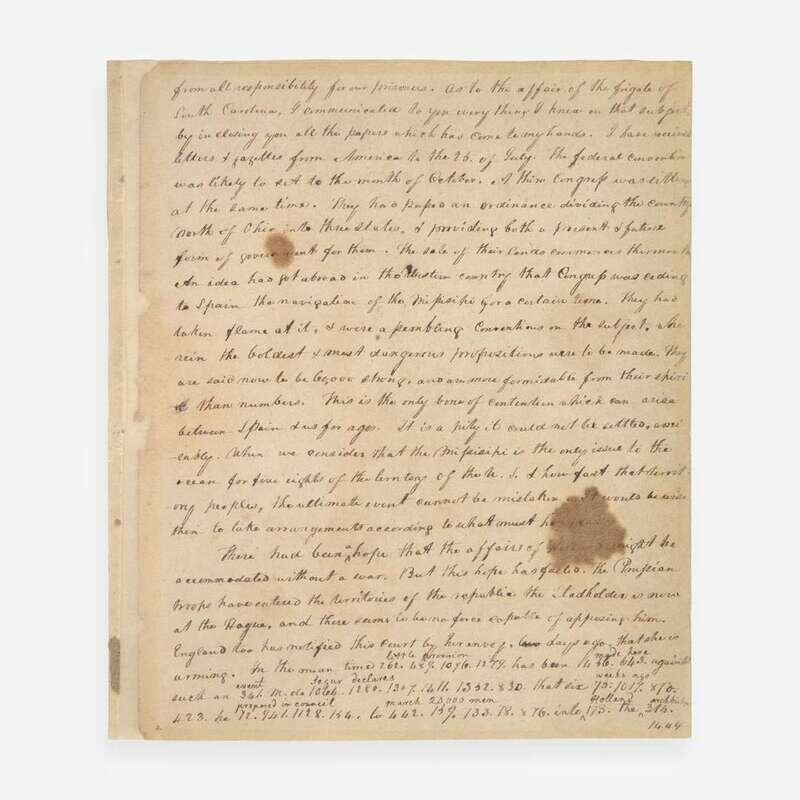 from all responsibility for our prisoners. As to the affair of the frigate of
South Carolina, I communicated to you every thing I knew on that subject
by inclosing you all the papers which had come to my hands. I have received
letters & gazettes from America to the 25. of July. The federal convention
was likely to set to the month of October. A thin Congress was sitting
at the same time. They had passed an ordinance dividing the country
North of Ohio into three states, & providing both a present & future
form of government for them. The sale of their lands commences this month.
An idea had got abroad in the Western country that Congress was ceding
to Spain the navigation of the Missisipi for a certain time. They had
taken flame at it, & were assembling Conventions on the subject, whe
rein the boldest & most dangerous propositions were to be made. They
are said now to be 60,000 strong, and are more formidable from their spiri
t than numbers. This is the only bone of contention which can arise
between Spain & us for ages. It is a pity it could not be settled ami
cably. When we consider that the Missisipi is the only issue to the
ocean for five eights of the territory of the U. S. & how fast that territ
ory peoples, the ultimate event cannot be mistaken. it would be wise
then to take arrangements according to what must
There had been a hope that the affairs of might be
accommodated without a war. But this hope has failed. the Prussian
troops have entered the territories of the republic the Stadholder is now
at the Hague, and there seems to be no force capable of opposing him.
England too has notified this court by her envoy, two days ago, that she is
little provision made here
arming. In the mean time 262. 489. 1076. 1277. has been 1436. 643. against
event Segur declares weeks ago
such an 341. M. de 1064. 1280. 1307. 1411. 1352. 830. that six 75. 1017. 873.
prepared in council march 25,000 men Holland archbishop
423. he 72. 941. 1128. 154. to 442. 159. 733. 78. 876. into 175. the 314.
1444